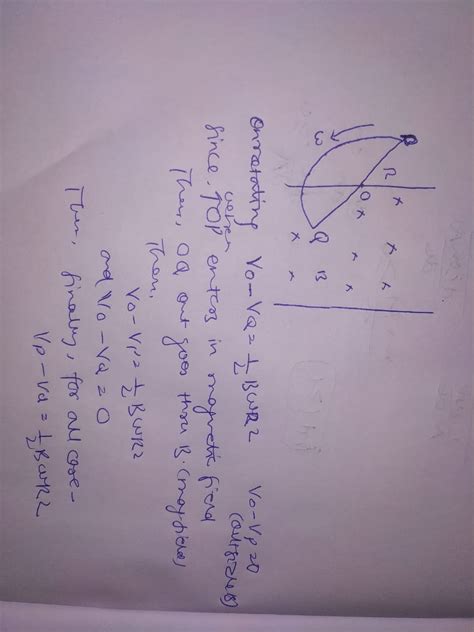 P
R
O
x
x
x
x
x
x
x
Q
B
ω
Onrotating Vo-VQ=½BWR2 Vo-Vp=0
(outside B)
when
since, OP enters in magnetic field
Then, OQ out goes thru B.(mag field)
Then,
Vo-Vp=½BWR2
and Vo-VQ=0
Then, finally, for all case-
Vp-VQ=½BWR2